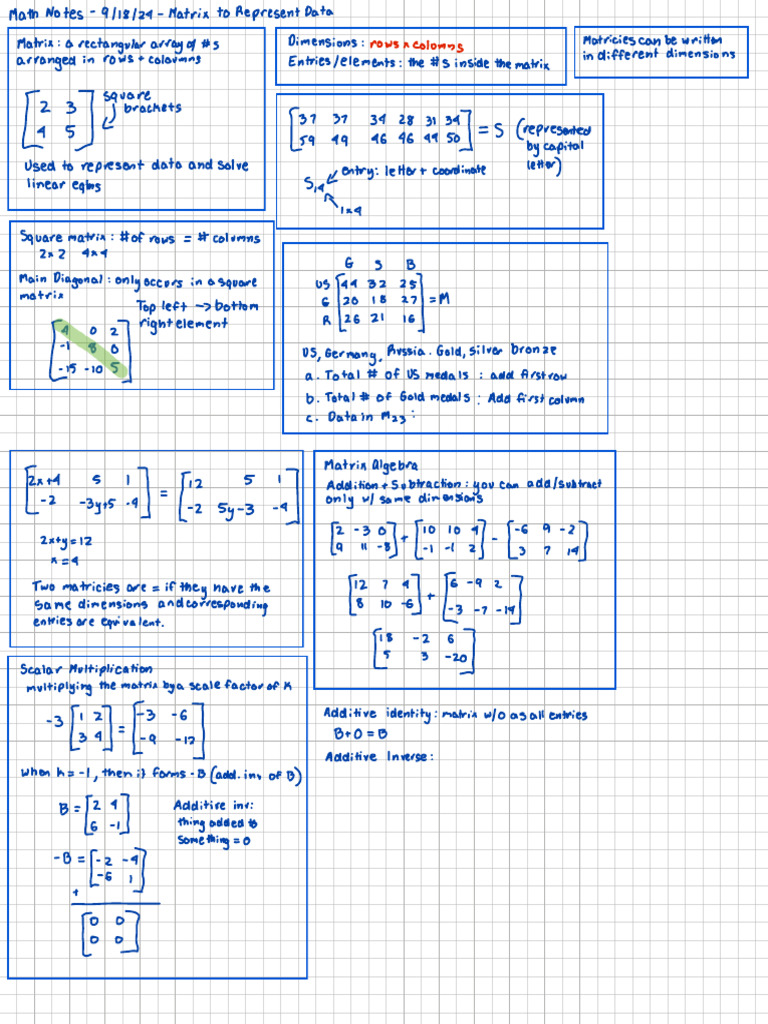 Math Notes - 9/18/24 - Matrix to Represent Data
Matrix : a rectangular array of #s
arranged in rows + coloumns
[2 3
4 5]
square
brackets
Used to represent data and solve
linear eqtns
Dimensions : rows × coloms
Entries/elements : the #s inside the matrix
Matricies can be written
in different dimensions
[37 37 34 28 31 34
59 49 46 46 49 50] = S (represented
by capital
letter)
S14 entry: letter + coordinate
1×4
Square matrix : # of rows = # columns
2×2 4×4
Main Diagonal : only occurs in a square
matrix
Top left -> bottom
right element
[4 0 2
-1 8 0
-15 -10 5]
G S B
US [44 32 25
G 20 18 27
R 26 21 16] = M
US, Germany, Russia. Gold, Silver bronze
a. Total # of US medals : add first row
b. Total # of Gold medals : Add first column
c. Data in M23 :
[2x+4 5 1
-2 -3y+5 -4] = [12 5 1
-2 5y-3 -4]
2x+y=12
x=4
Two matricies are = if they have the
same dimensions and corresponding
entries are equivalent.
Matrix Algebra
Addition + Subtraction : you can add/subtract
only w/ same dimensions
[2 -3 0
9 11 -8] + [10 10 4
-1 -1 2] - [-6 9 -2
3 7 14]
[12 7 4
8 10 -6] + [6 -9 2
-3 -7 -14]
[18 -2 6
5 3 -20]
Scalar Multiplication
multiplying the matrix by a scale factor of K
-3 [1 2
3 4] = [-3 -6
-9 -12]
when k = -1, then it forms -B (add. inv of B)
B = [2 4
6 -1]
Additive inv:
thing added to
something = 0
-B = [-2 -4
-6 1]
+
[0 0
0 0]
Additive identity : matrix w/ 0 as all entries
B+0 = B
Additive Inverse :